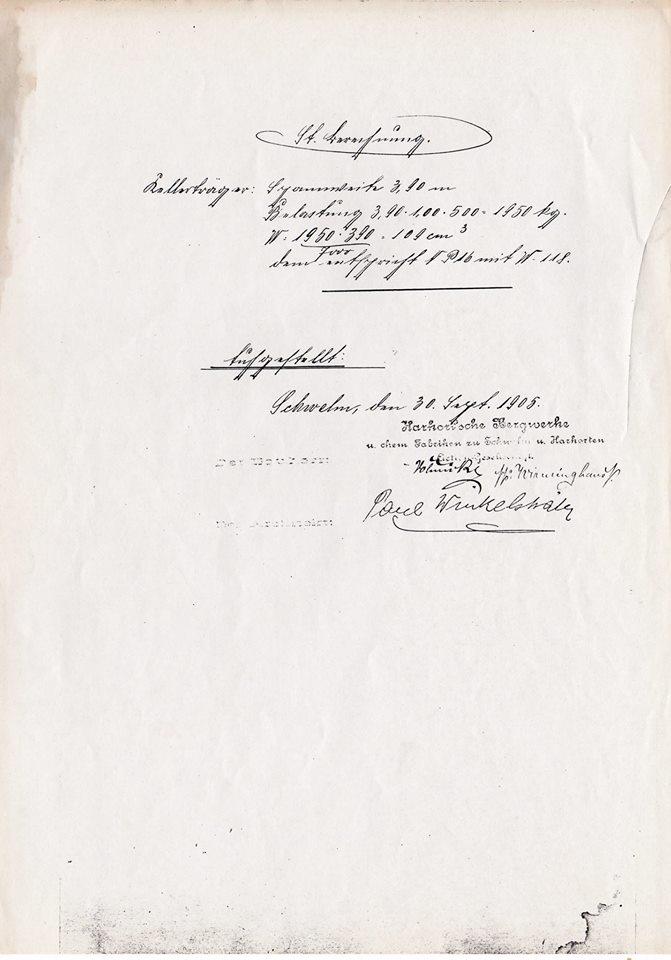 St. Berechnung.
Kellerträger: Spannweite 3,90 m
Belastung 3,90·1,00·500 = 1950 kg.
W = 1950·390 = 109 cm³
7000
dem entspricht N P 16 mit W = 118.
Aufgestellt:
Schwelm, den 30. Sept. 1905.
Harkort'sche Bergwerke
u. chem Fabriken zu Schwelm u. Harkorten
Actien-Gesellschaft.
Der Bauherr:
ppa. Wirminghaus
Paul Winkelsträter
Der Architekt: